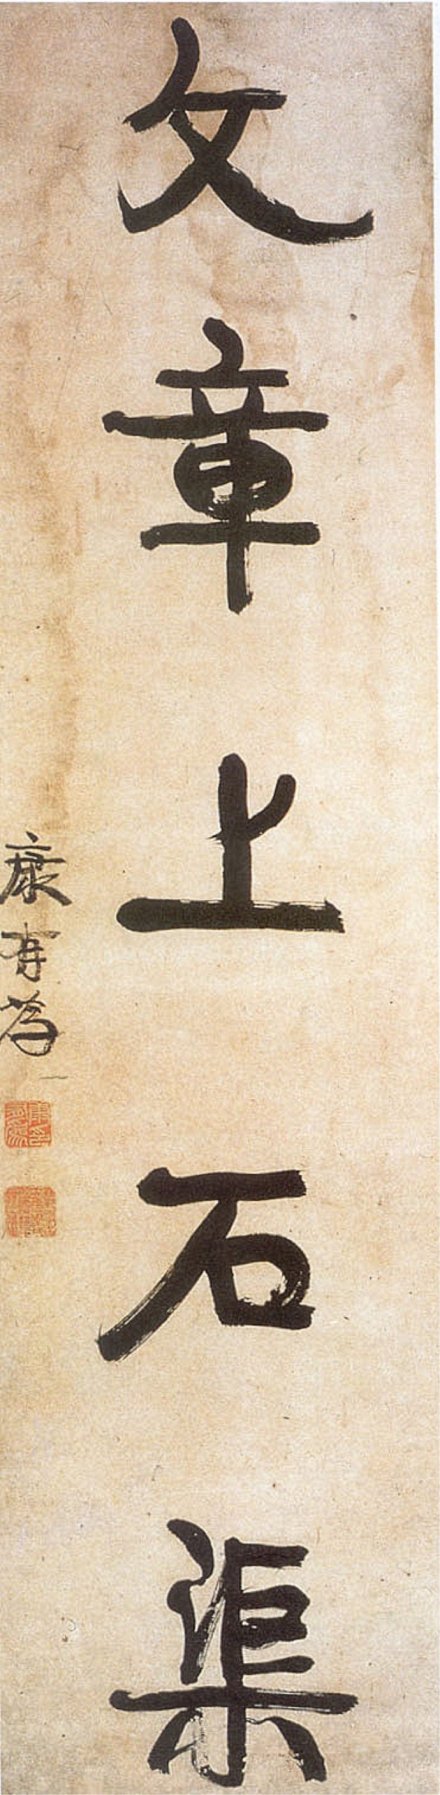 文章上石渠
康有為